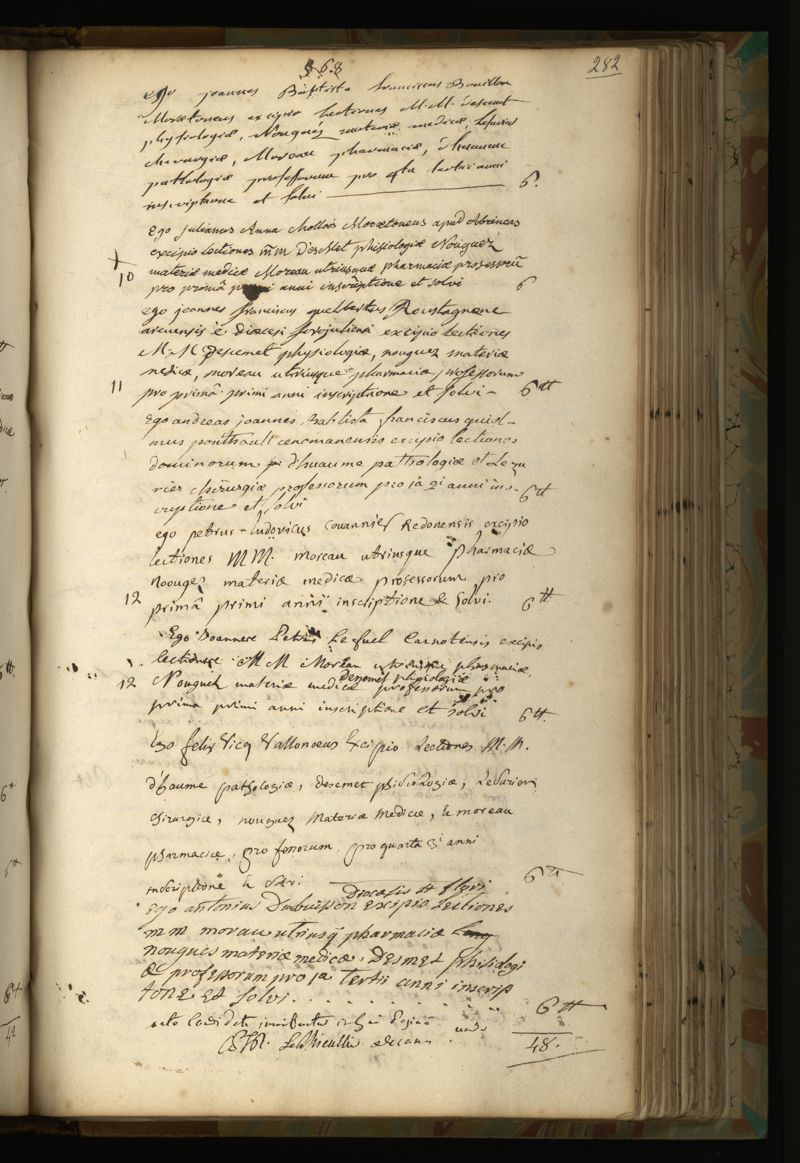 368
282
ego joannes Baptista franciscus Bouillon
Moretoneus excipio lectiones M.M. descemet
physiologiæ, Nouguez materiæ medicæ, lesurier
chirurgiæ, Moreau pharmaciæ, d'huaume
pathologiæ professorum pro 4ta tertii anni
inscriptione et solvi 6.
Ego julianus Anna Mollois Moretoneus apud Abrincas
excipio lectiones m̄m Descemet phisiologiæ Nouguez
materiæ medicæ Moreau utriusque pharmaciæ professorū
10
pro primâ primi anni inscriptione et solvi 6
ego joannes franciscus guilbertus Roustagnene
arcuensis è diœcesi forojuliensi excipio lectiones
M.M Descemet physiologiæ, nouguez materiæ
medicæ, moreau utriusque pharmaciæ professorum
11 pro primâ primi anni inscriptione et solvi - 6tt
Ego andreas joannes Baptista franciscus guiel-
mus ponthault cenomanensis excipio lectiones
dominorum d'huaume pathologiæ et Lezu
rier chirurgiæ professorum pro 1a 2i anni ins-
criptione et solvi 6tt
ego petrus-ludovicus Redonensis excipio
lectiones MM. moreau utriusque pharmaciæ
Noouges materiæ medicæ professorum pro
12 primâ primi anni insciptione & solvi. 6tt
Ego Joannes Petrus Le fuel Carnotensis excipio
lectiones M M Moreau utriusque pharmaciæ,
Descemet phisiologiæ
12 Nouguez materiæ medicæ professorum pro
prima primi anni inscriptione et solvi 6tt.
Ego felix Vicq Vallonoeus Excipio Lectiones M.M.
d'haume pathologiæ, descemet phisiologiæ, Lesurier
chirurgiæ, nouguez Materiæ Medicæ, & moreau
pharmaciæ, professorum, pro quarta 3i anni
inscriptione & solvi 6tt
Diocesis st flori
Ego antonius Dubuisson Excipio Lectiones
mm morau utriusq pharmaciæ
nougues materiæ medicæ, Desmet phisiologi
æ professorum pro 1a tertii anni inscrip
tone et solvi. 6tt
octo Candidati in hac Pagina
decanus
48.